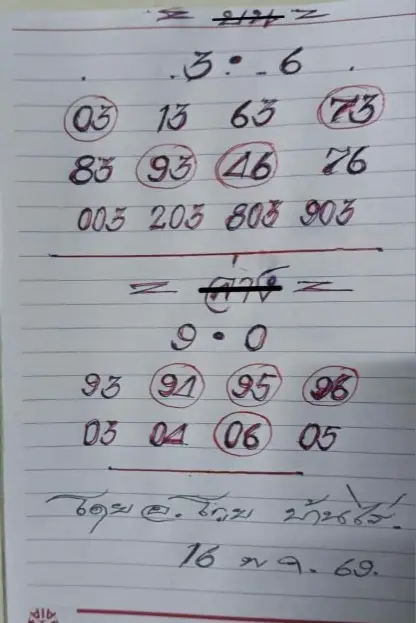 = บน =
3 • 6
03 13 63 73
83 93 46 76
003 203 803 903
= ล่าง =
9 • 0
93 91 95 96
03 04 06 05
โดย อ. โชย บ้านไร่.
16 พ ค. 69.